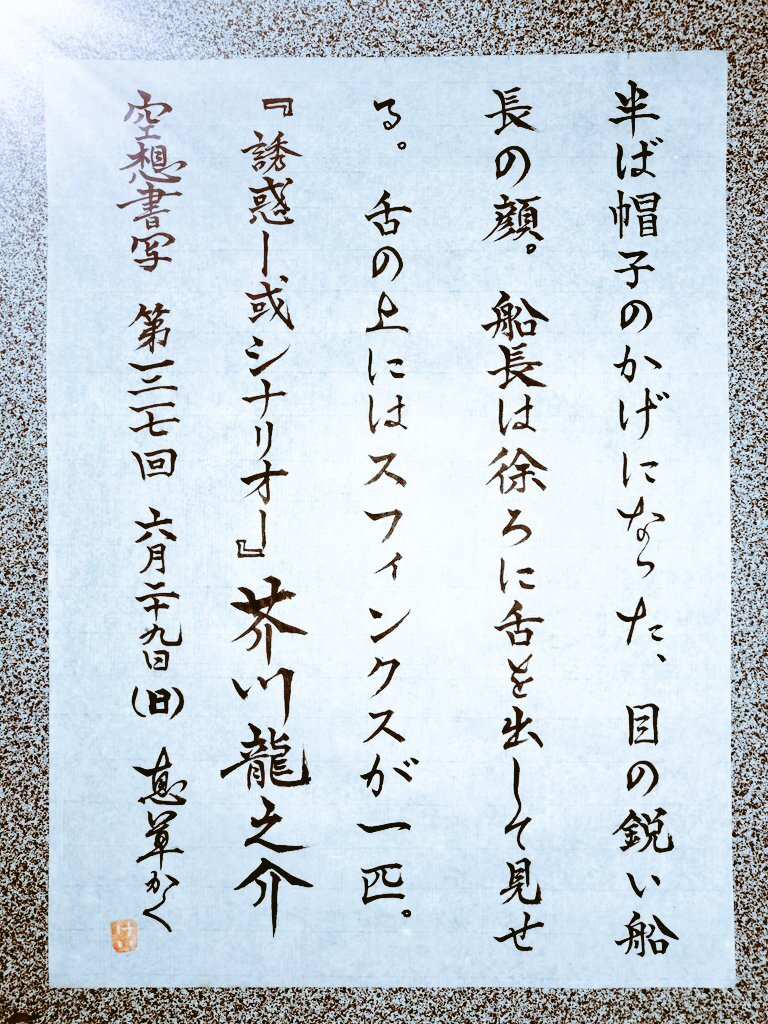 半ば帽子のかげになつた、目の鋭い船
長の顔。船長は徐ろに舌を出して見せ
る。舌の上にはスフィンクスが一匹。
『誘惑ー或シナリオー』芥川龍之介
空想書写 第一三一七回 六月二十九日(日) 恵草かく
けい